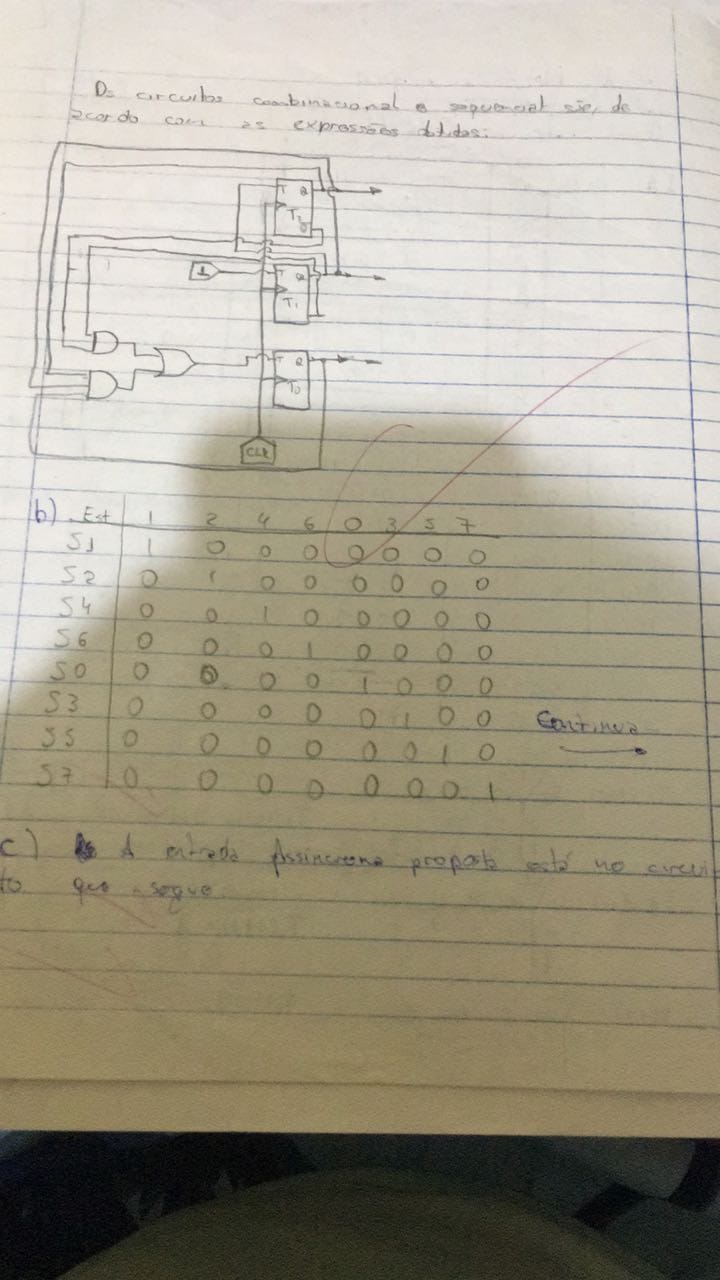 Os circuitos combinacional e sequencial são, de
acordo com as expressões obtidas:
T Q
T₂
1
T Q
T₁
T Q
T₀
CLK
b) Est 1 2 4 6 0 3 5 7
S1 1 0 0 0 0 0 0 0
S2 0 1 0 0 0 0 0 0
S4 0 0 1 0 0 0 0 0
S6 0 0 0 1 0 0 0 0
S0 0 0 0 0 1 0 0 0
S3 0 0 0 0 0 1 0 0 Continua
S5 0 0 0 0 0 0 1 0
S7 0 0 0 0 0 0 0 1
c) A entrada Assíncrona proposta está no circui
to que segue